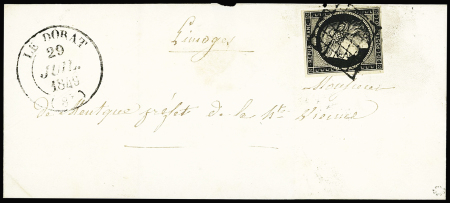 LE DORAT
29
JUIL.
1849
(81)
Limoges
Monsieur
préfet de la hte Vienne